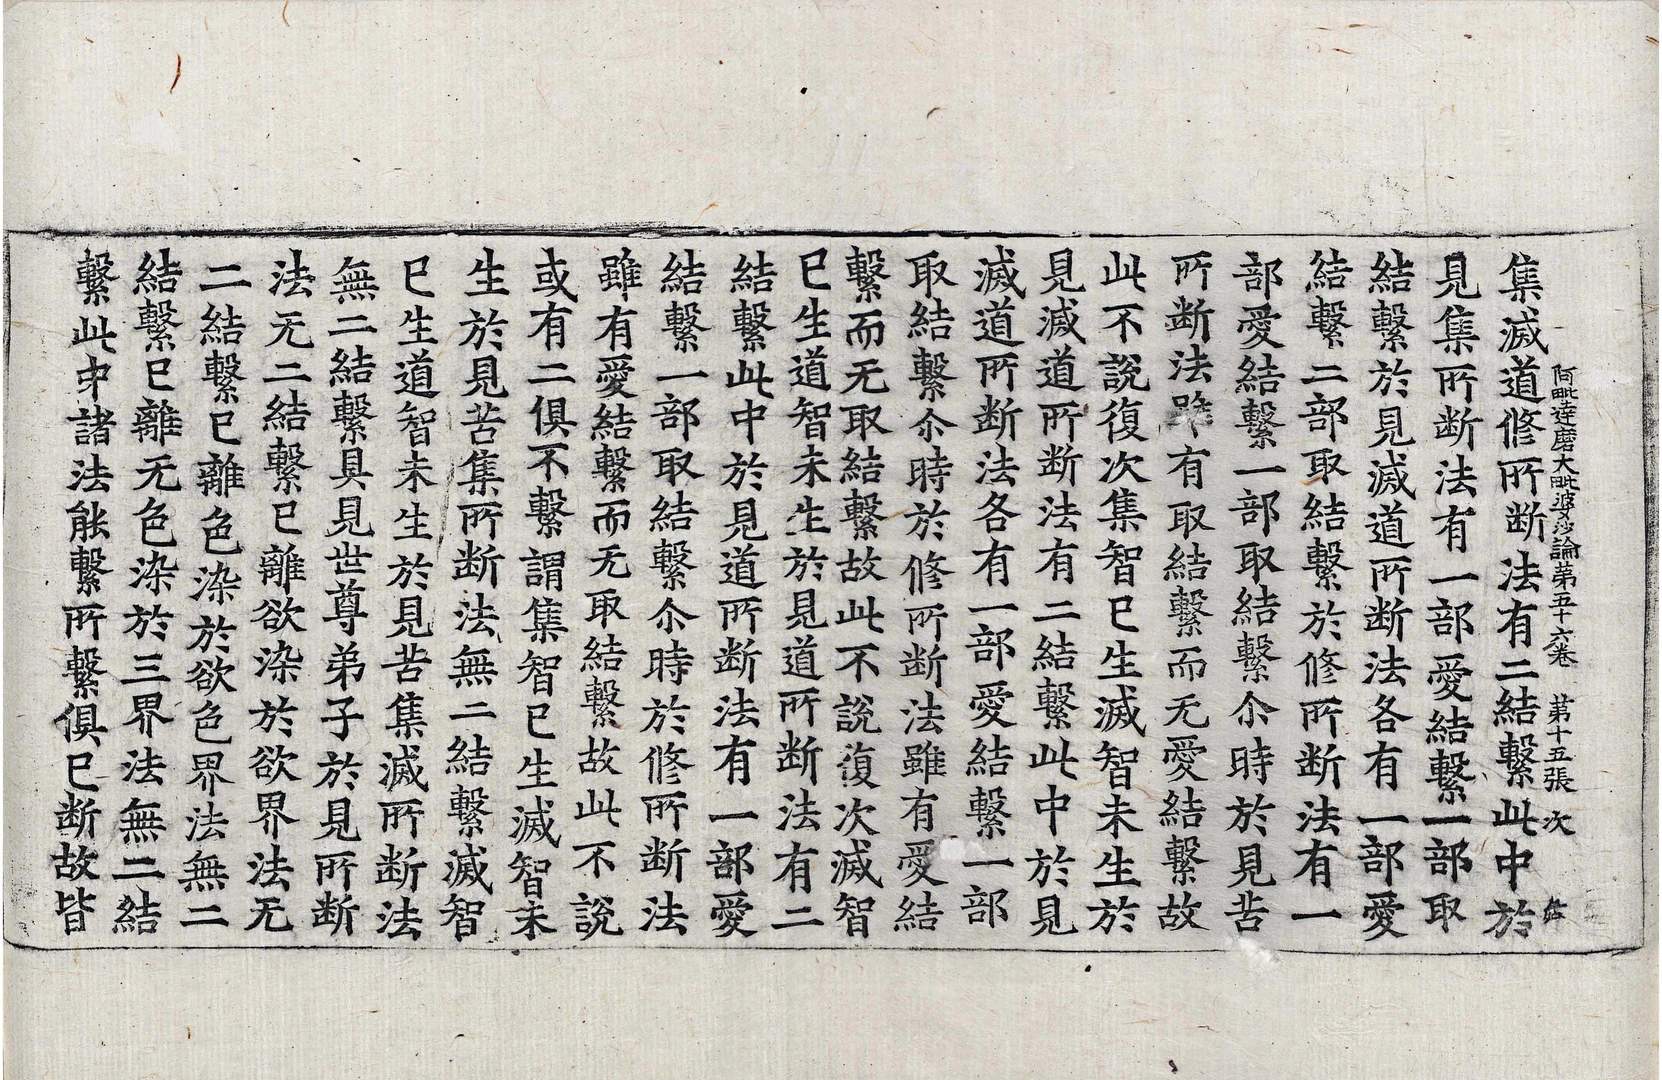 阿毗達磨大毗婆沙論第五十六卷　第十五張　次
集滅道修所断法有二結繫此中於
見集所断法有一部愛結繫一部取
結繫於見滅道所断法各有一部愛
結繫二部取結繫於修所断法有一
部愛結繫一部取結繫尒時於見苦
所断法雖有取結繫而无愛結繫故
此不說復次集智已生滅智未生於
見滅道所断法有二結繫此中於見
滅道所断法各有一部愛結繫一部
取結繫尒時於修所断法雖有愛結
繫而无取結繫故此不說復次滅智
已生道智未生於見道所断法有二
結繫此中於見道所断法有一部愛
結繫一部取結繫尒時於修所断法
雖有愛結繫而无取結繫故此不說
或有二俱不繫謂集智已生滅智未
生於見苦集所断法無二結繫滅智
已生道智未生於見苦集滅所断法
無二結繫具見世尊弟子於見所断
法无二結繫已離欲染於欲界法无
二結繫已離色染於欲色界法無二
結繫已離无色染於三界法無二結
繫此中諸法能繫所繫俱已断故皆